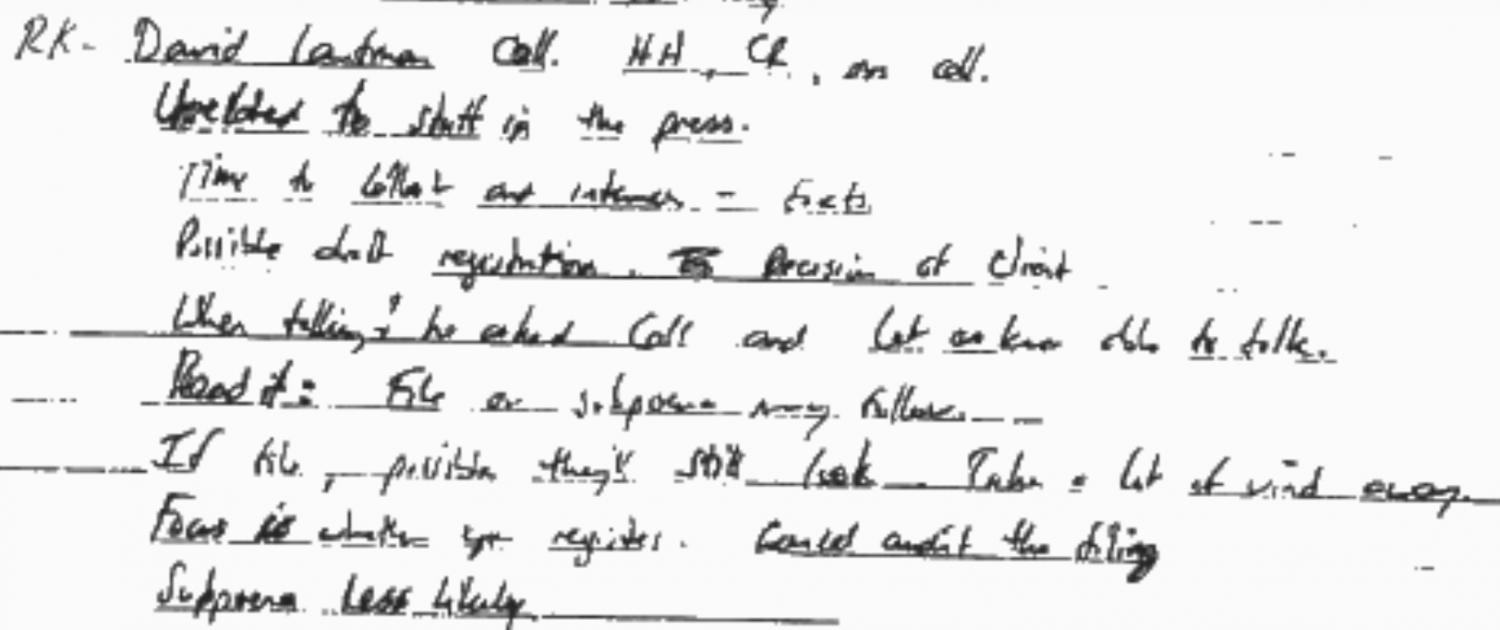 RK- David Laufman Call. HH, CR, on call.
Unrelated to stuff in the press.
Time to collect and - facts
Possible draft registration. Decision of client
When talking, he asked Call and let know able to talk.
Read it: File or subpoena may follow.
If file, possible they'll still look. Takes a lot of wind away.
Focus is whether you register. Could audit the filing
Subpoena less likely